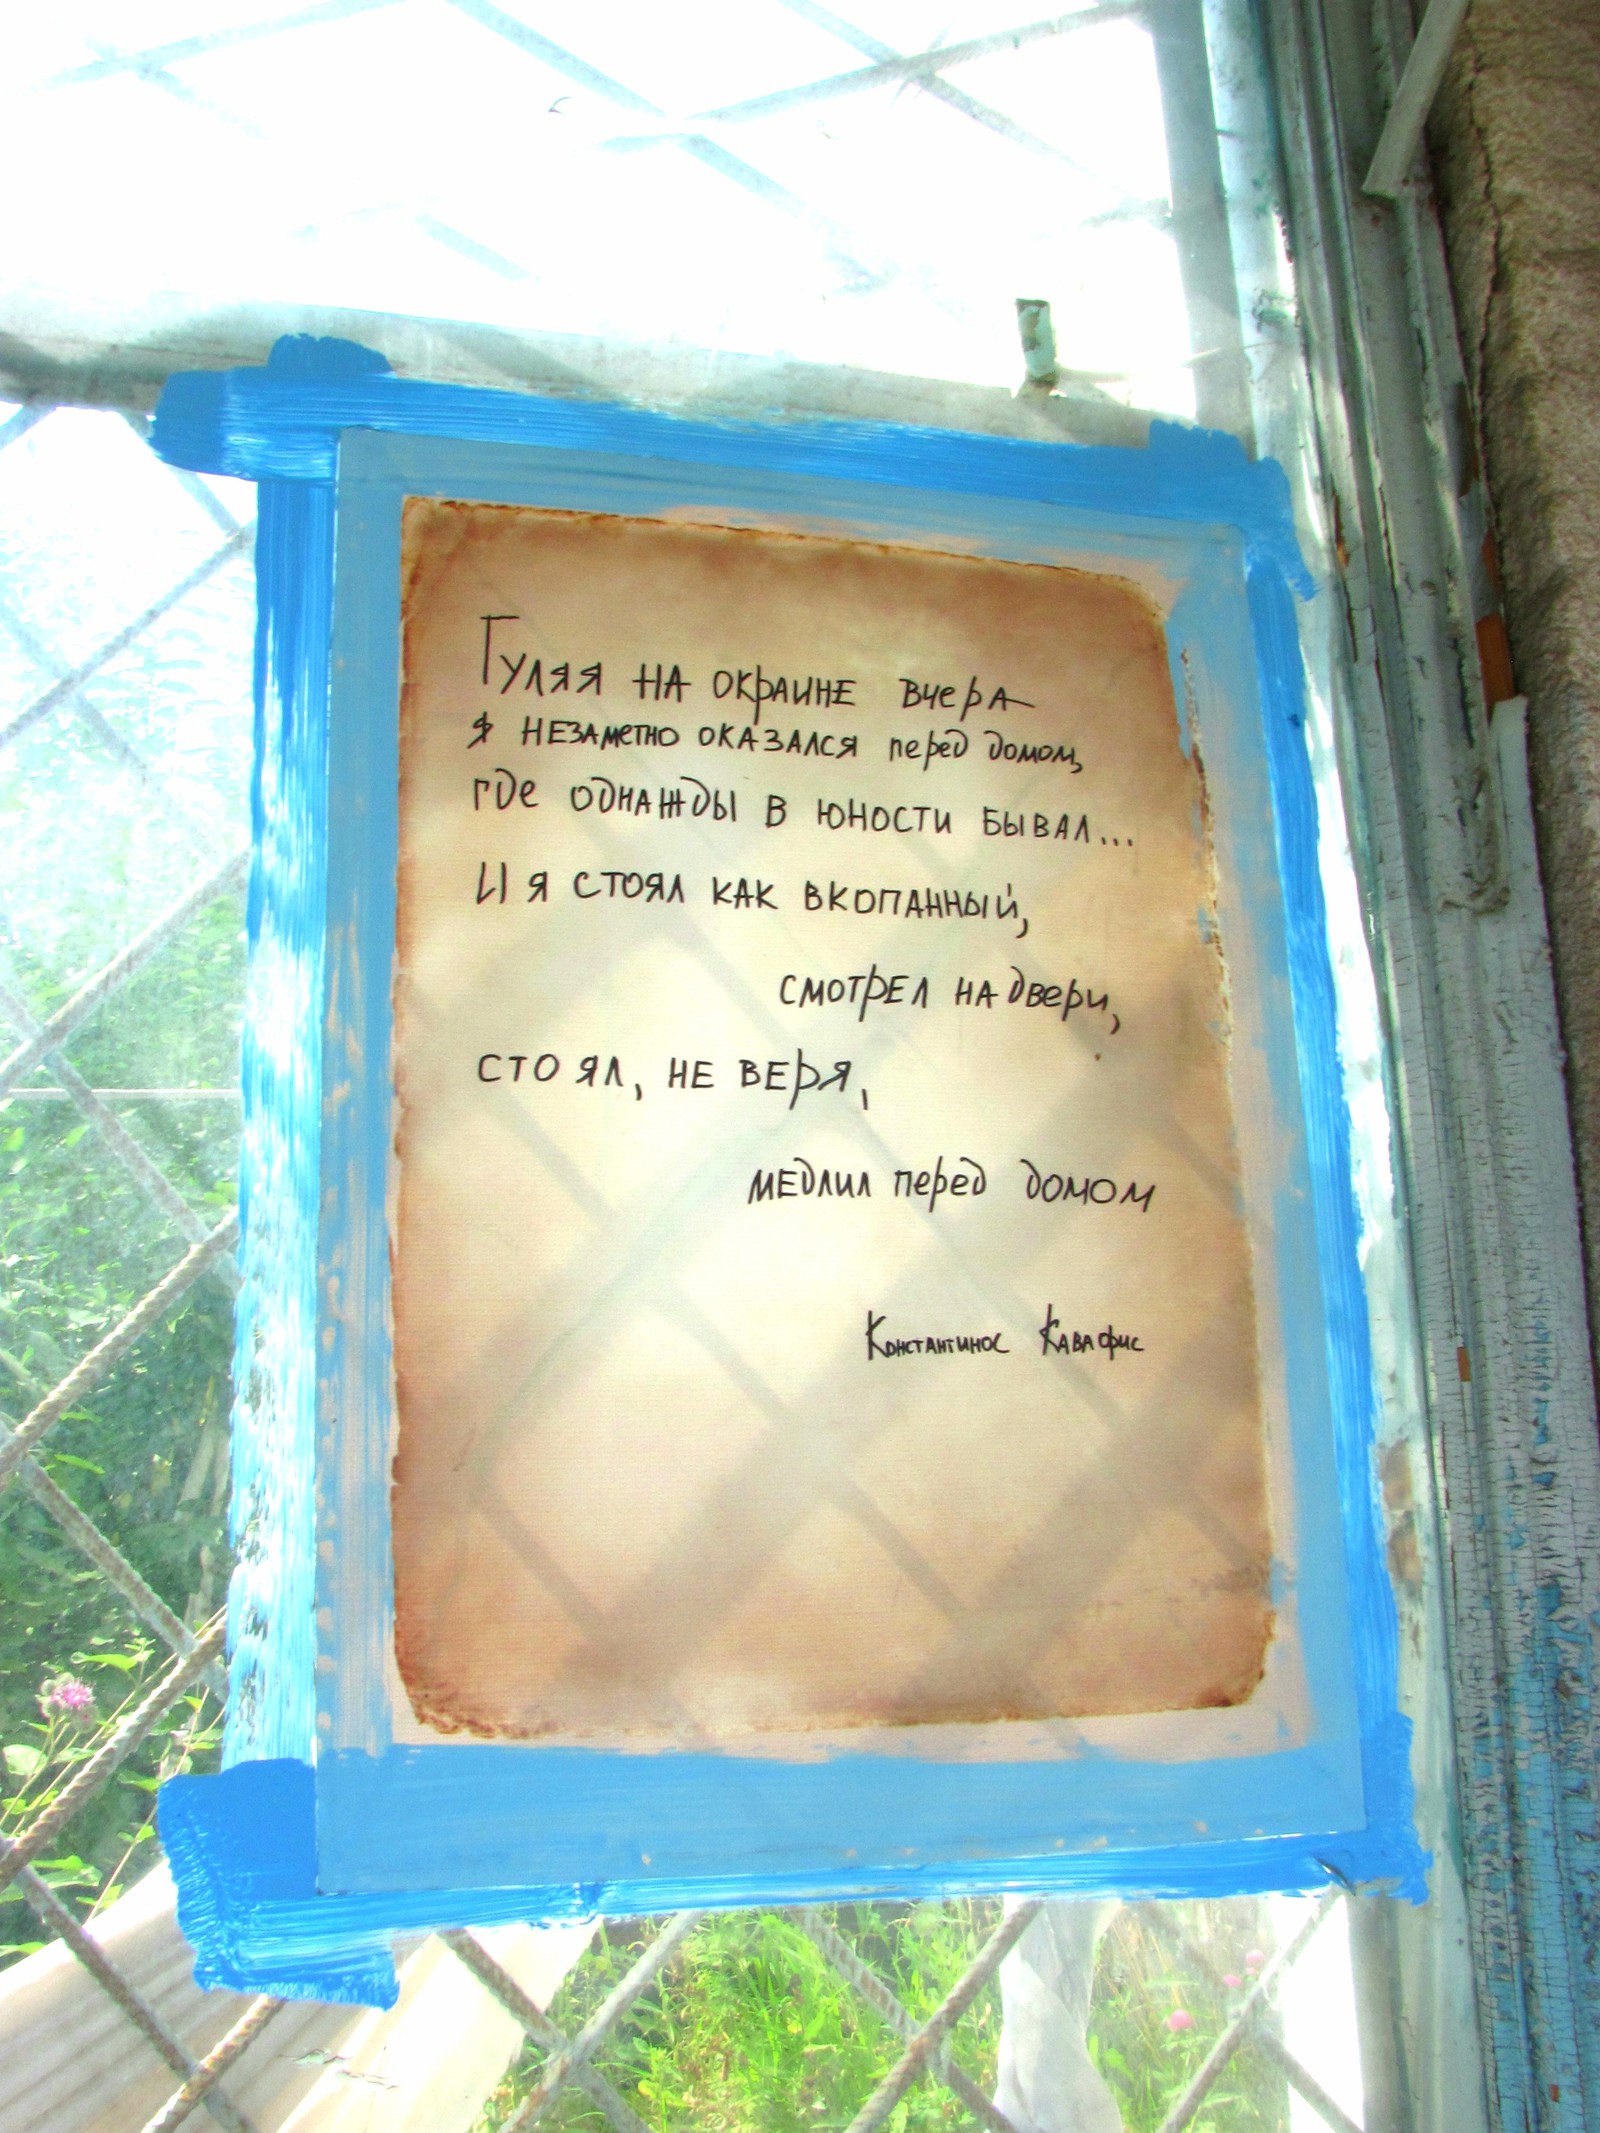 Гуляя на окраине вчера
я незаметно оказался перед домом,
где однажды в юности бывал...
И я стоял как вкопанный,
смотрел на двери,
стоял, не веря,
медлил перед домом
Константинос Кавафис